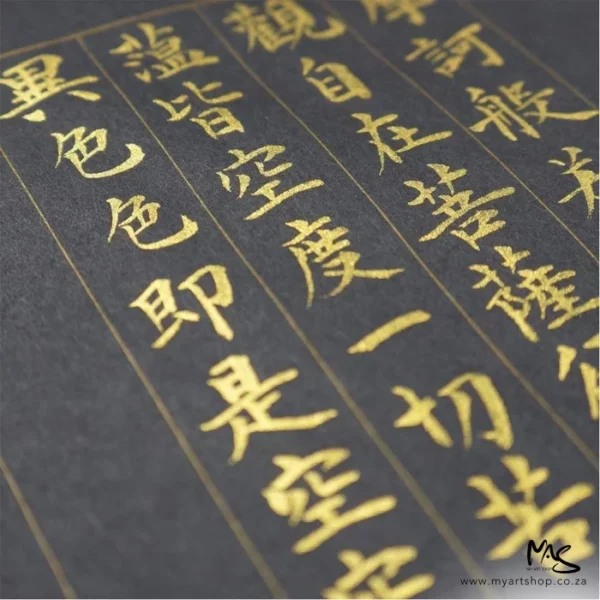 訶般
觀自在菩薩
蘊皆空度一切苦
異色色即是空空
MAS
MY ART SHOP
www.myartshop.co.za